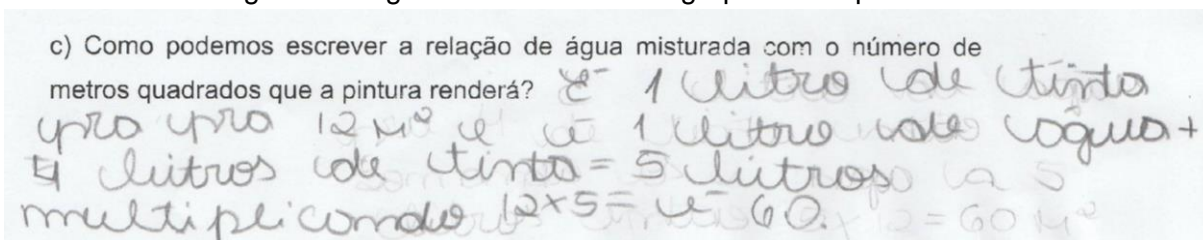 c) Como podemos escrever a relação de água misturada com o número de
metros quadrados que a pintura renderá? É 1 litro de tinta
pro pro 12 M² e é 1 litro de água +
4 litros de tinta = 5 litros
multiplicando 12x5= é 60.